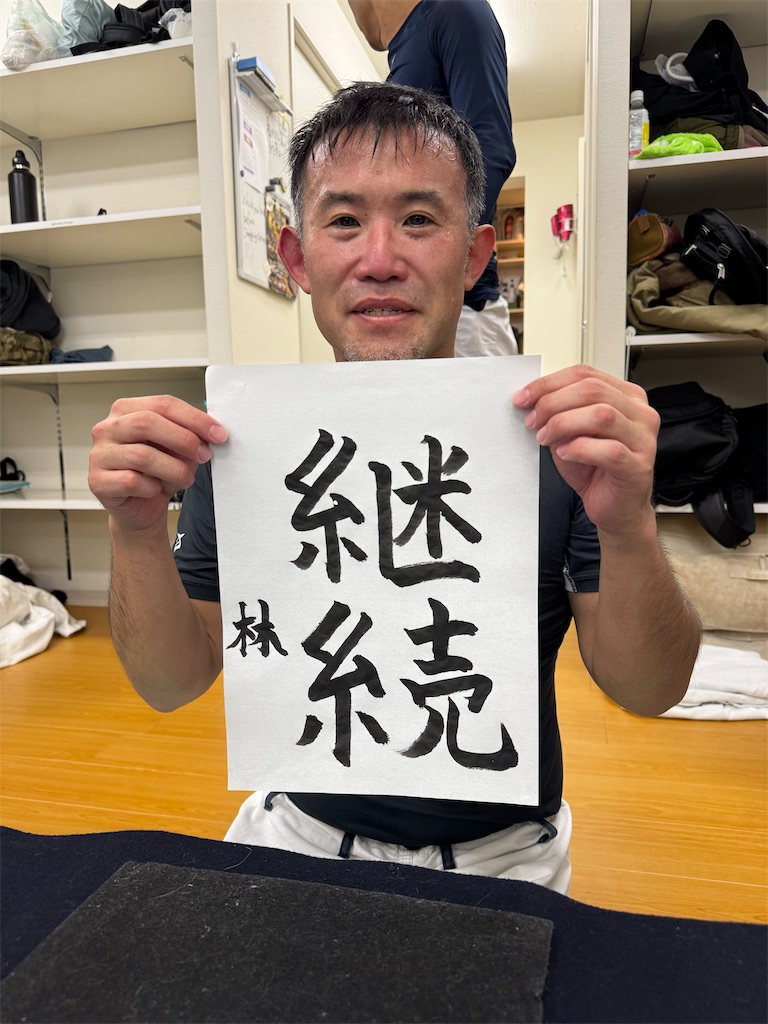 継続
林